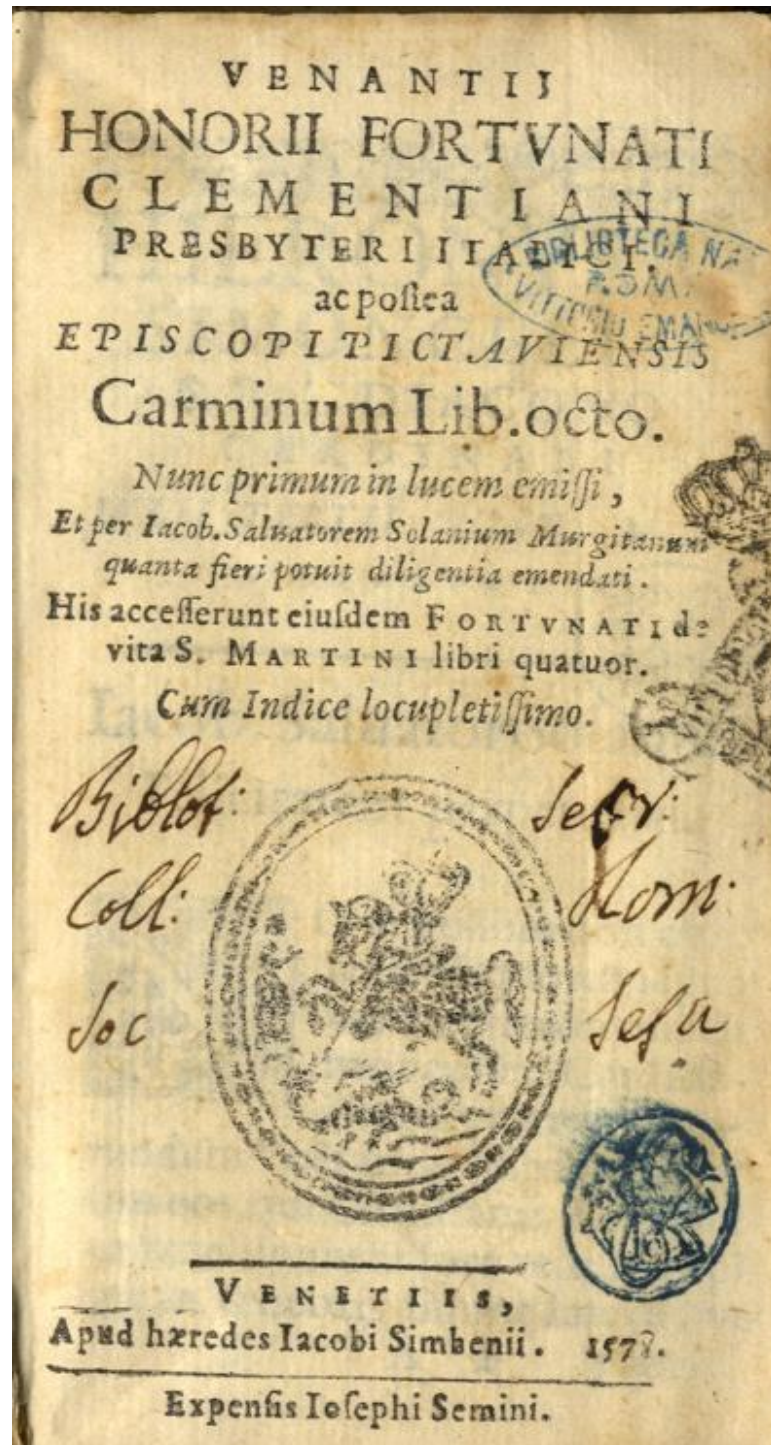 VENANTIJ
HONORII FORTVNATI
CLEMENTIANI
PRESBYTERI ITALICI,
ac postea
EPISCOPI PICTAVIENSIS
Carminum Lib. octo.
Nunc primum in lucem emissi,
Et per Iacob. Saluatorem Solanium Murgitanum
quanta fieri potuit diligentia emendati.
His accesserunt eiusdem FORTVNATI de
vita S. MARTINI libri quatuor.
Cum Indice locupletissimo.
BIBLIOTECA NAZ
ROMA
VITTORIO EMANUELE
Bibliot: Secr:
Coll: Rom:
Soc Jesu
VENETIIS,
Apud hæredes Iacobi Simbenii. 1578.
Expensis Iosephi Semini.